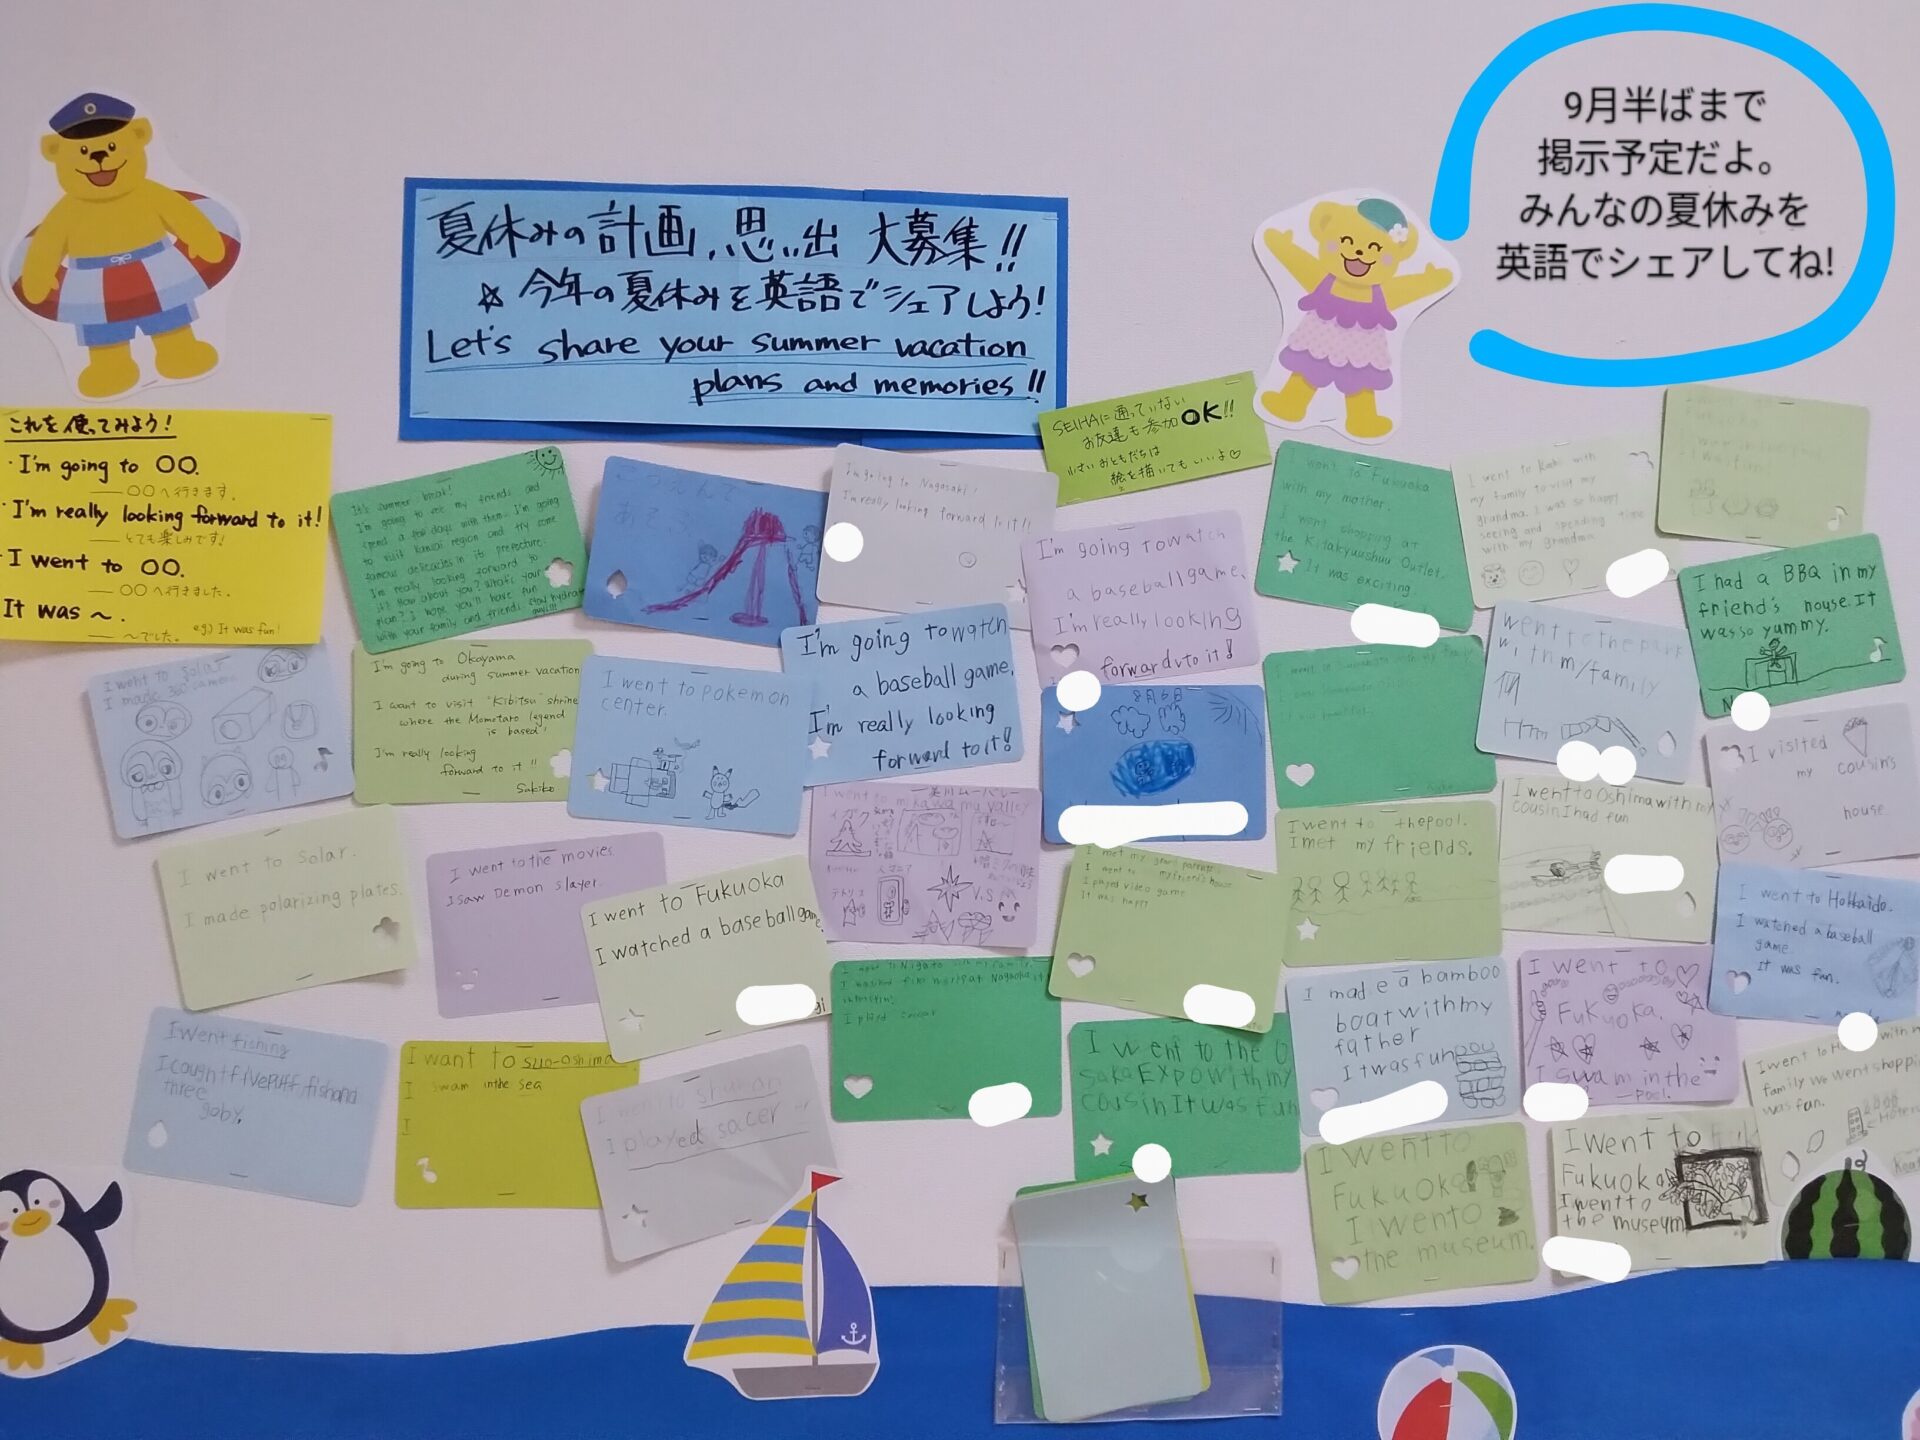 9月半ばまで
掲示予定だよ。
みんなの夏休みを
英語でシェアしてね!
夏休みの計画、思い出 大募集!!
☆今年の夏休みを英語でシェアしよう!
Let's share your summer vacation
plans and memories!!
SEIHAに通っていない
お友達も参加OK!!
小さいおともだちは
絵を描いてもいいよ♡
これを使ってみよう!
・I'm going to ○○.
○○へ行きます.
・I'm really looking forward to it!
とても楽しみです!
・I went to ○○.
○○へ行きました.
It was ~.
~でした. eg) It was fun!
It's summer break!
I'm going to see my friends and
spend a few days with them. I'm going
to visit Kansai region and try some
famous delicacies in its prefecture.
I'm really looking forward to
it! How about you? What's your
plan? I hope you'll have fun
with your family and friends. Stay hydrated
こうえんで
あそぶ
I'm going to Nagasaki!
I'm really looking forward to it!!
I'm going to watch
a baseball game.
I'm really looking
forward to it!
I went to Fukuoka
with my mother.
I went shopping at
the Kitakyuushuu Outlet.
It was exciting.
I went to Kobe with
my family to visit my
grandma. I was so happy
seeing and spending time
with my grandma
I had a BBQ in my
friend's house. It
was so yummy.
I went to solar
I made 360 camera
I'm going to Okayama
during summer vacation
I want to visit "Kibitsu" shrine
where the Momotaro legend
is based!
I'm really looking
forward to it!!
Sakiko
I went to pokemon
center.
I'm going to watch
a baseball game.
I'm really looking
forward to it!
went to the park
with my family
I visited
my cousin's
house
I went to solar.
I made polarizing plates.
I went to the movies
I saw Demon slayer.
I went to Fukuoka
I watched a baseball game.
I went to mikawa mu valley
V.S
I met my grand parents
I went to my friend's house
I played video game
It was happy
I went to the pool.
I met my friends.
I went to Oshima with my
cousin I had fun
I went to Hokkaido.
I watched a baseball
game.
It was fun.
I went fishing
I caught five puff fish and
three
goby.
I want to suo-oshima
I swam in the sea
I
I played sacer
I went to the O
saka EXPO with my
cousin It was fun
I made a bamboo
boat with my
father
I twas fun
I went to
Fukuoka.
I swam in the
pool.
I went to
family we went shoppi
was fun.
I went to
Fukuoka
I wento
the museum.
I went to
Fukuoka
I went to
the museum